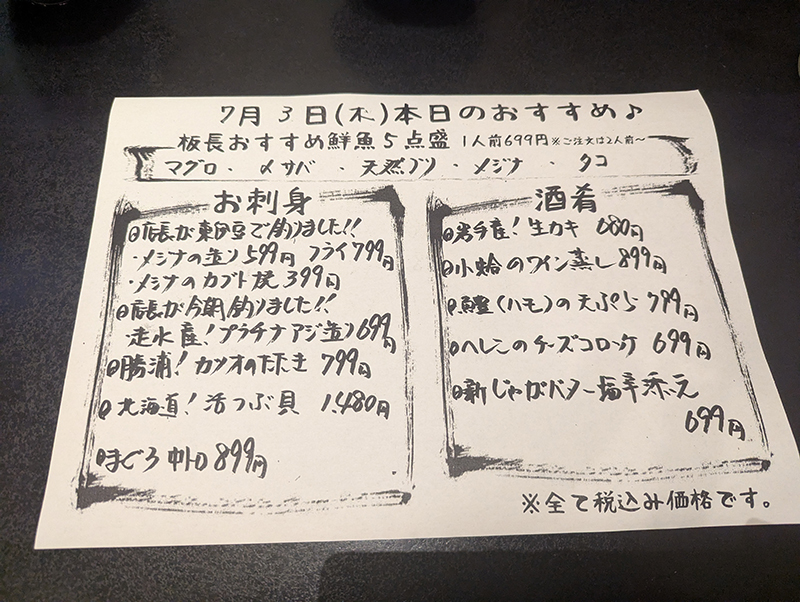 7月3日(木)本日のおすすめ♪
板長おすすめ鮮魚5点盛 1人前699円 ※ご注文は2人前〜
マグロ・〆サバ・天然ブリ・メジナ・タコ
お刺身
店長が東伊豆で釣りました!!
・メジナの造り599円 フライ799円
・メジナのカブト焼 399円
店長が今朝釣りました!!
走水産!プラチナアジ造り699円
勝浦!カツオのたたき 799円
北海道!活つぶ貝 1,480円
まぐろ中トロ899円
酒肴
岩手産!生カキ 680円
小蛤のワイン蒸し899円
鱧(ハモ)の天ぷら799円
のチーズコロッケ 699円
新じゃがバター塩辛添え
699円
※全て税込み価格です。